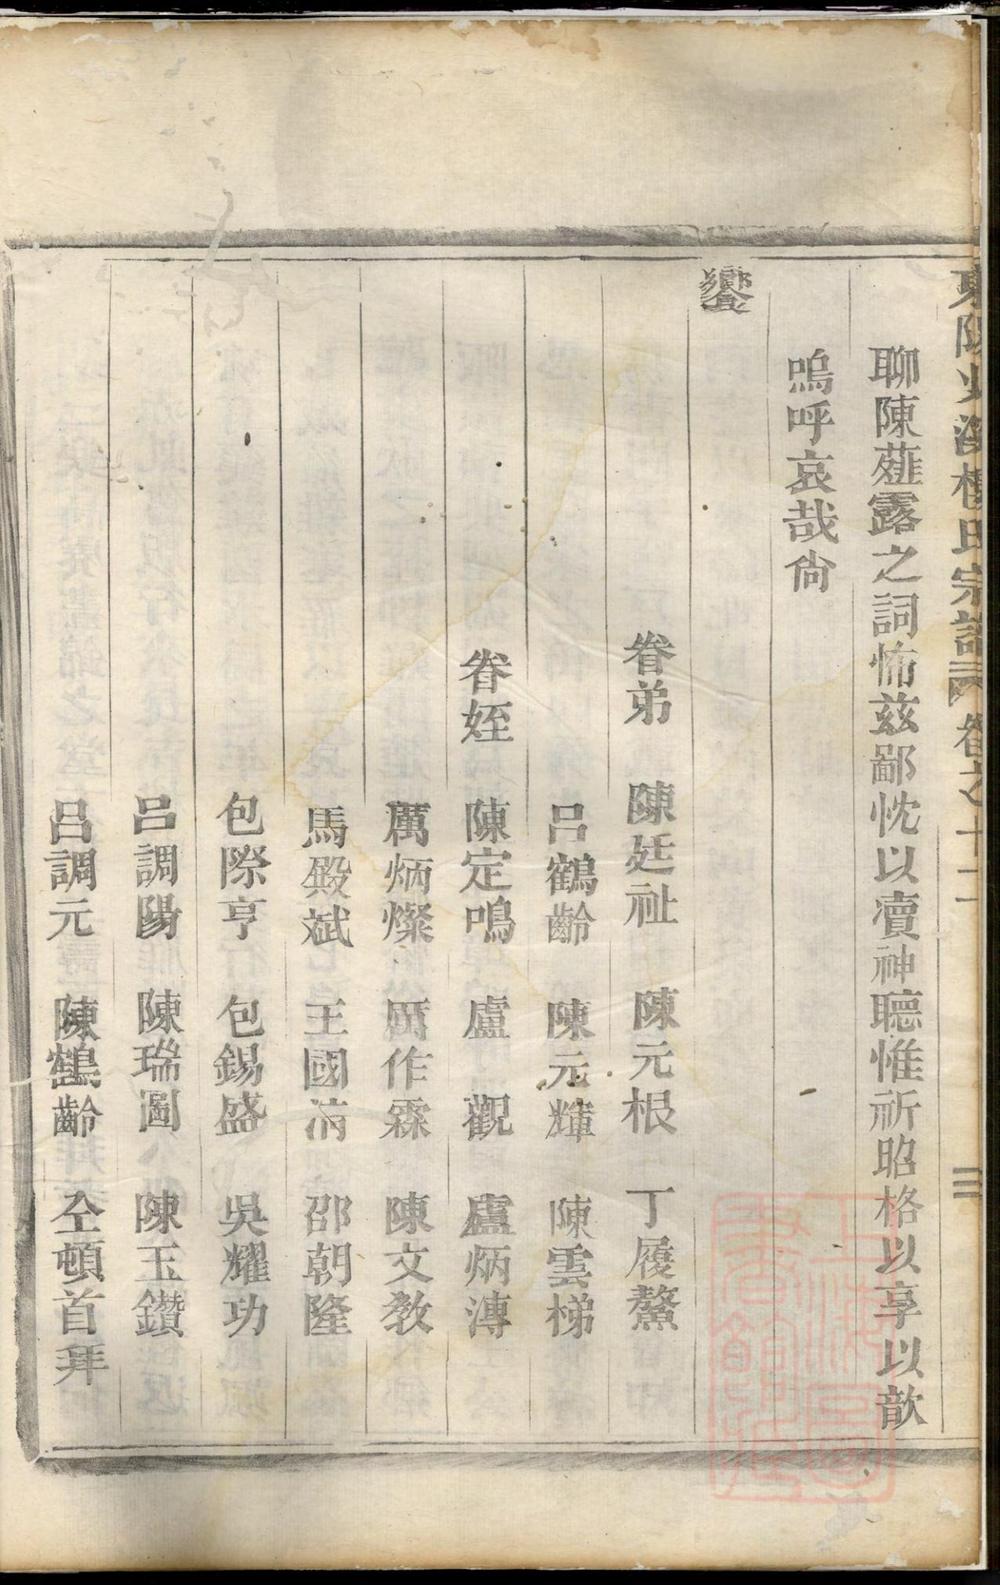 聊陳薤露之詞怖茲鄙忱以瀆神聽惟祈昭格以享以歆
嗚呼哀哉尙
饗
眷弟 陳廷祉 陳元根 丁履鰲
呂鶴齡 陳元輝 陳雲梯
眷姪 陳定鳴 盧觀 盧炳漙
厲炳燦 厲作霖 陳文教
馬殿斌 王國清 邵朝隆
包際亨 包錫盛 吳耀功
呂調陽 陳瑞圖 陳玉鑽
呂調元 陳鶴齡 仝頓首拜
宗譜 卷之十二
三